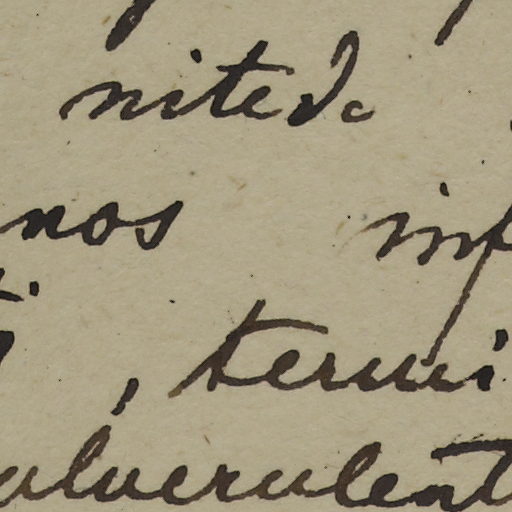 nitido
nos inf
, termi
ulverulent